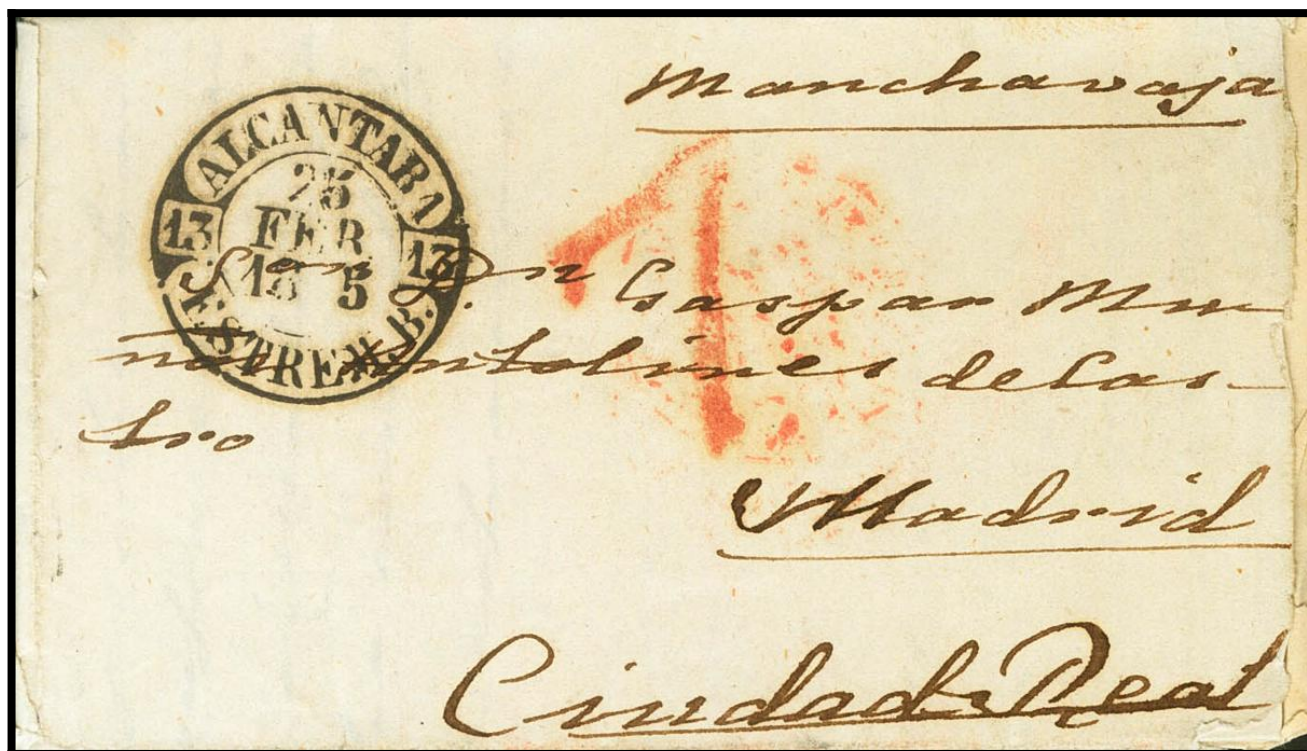 Manchavaja
ALCANTARA
25
FEB
18 5
13 13
ESTREM.B.
1
Sor Dn Gaspar Mu
ñoz Antolinez de Cas-
tro
Madrid
Ciudad Real